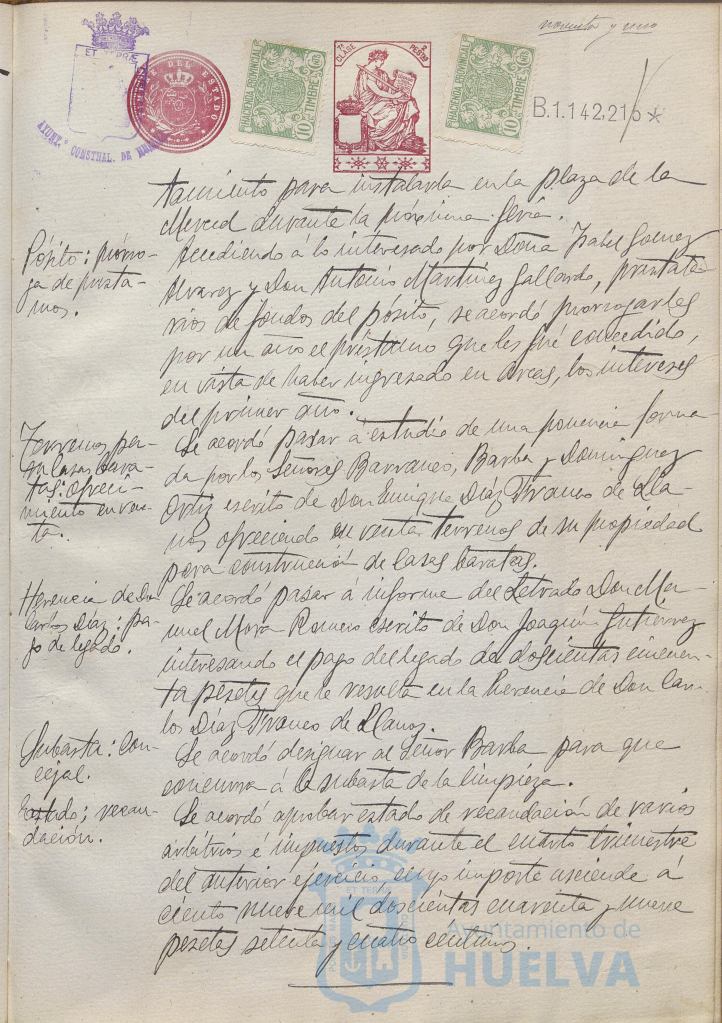 noventa y uno
ET TERRÆ
AYUNT.º CONSTNAL. DE HUELVA
TIMBRE DEL ESTADO
HACIENDA PROVINCIAL
10 TIMBRE
7ª CLASE 2 PESTAS
HACIENDA PROVINCIAL
10 TIMBRE
B.1.142,215 *
tamiento para instalarla en la plaza de la
Merced durante la próxima feria.
Pósito: prórro-
ga de présta-
mos.
Accediendo á lo interesado por Doña Isabel Gomez
Alvarez y Don Antonio Martínez Gallardo, prestata-
rios de fondos del pósito, se acordó prorrogarles
por un año el préstamo que les fué concedido,
en vista de haber ingresado en arcas, los intereses
del primer año.
Terrenos pa-
ra casas bara-
tas: ofreci-
miento en ven-
ta.
Se acordó pasar á estudio de una ponencia forma-
da por los Señores Barranco, Barba y Dominguez
Ortiz escrito de Don Enrique Díaz Franco de Lla-
nos ofreciendo en venta terrenos de su propiedad
para construcción de casas baratas.
Herencia de Don
Carlos Díaz: pa-
go de legado.
Se acordó pasar á informe del Letrado Don Ma-
nuel Mora Romero escrito de Don Joaquín Gutierrez
interesando el pago del legado de doscientas cincuen-
ta pesetas que le resulta en la herencia de Don Car-
los Díaz Franco de Llanos.
Subasta: con-
cejal.
Se acordó designar al Señor Barba para que
concurra á la subasta de la limpieza.
Estado; recau-
dación.
Se acordó aprobar estado de recaudación de varios
arbitrios é impuestos durante el cuarto trimestre
del anterior ejercicio cuyo importe asciende á
ciento nueve mil doscientas cuarenta y nueve
pesetas setenta y cuatro centimos.
Ayuntamiento de
HUELVA